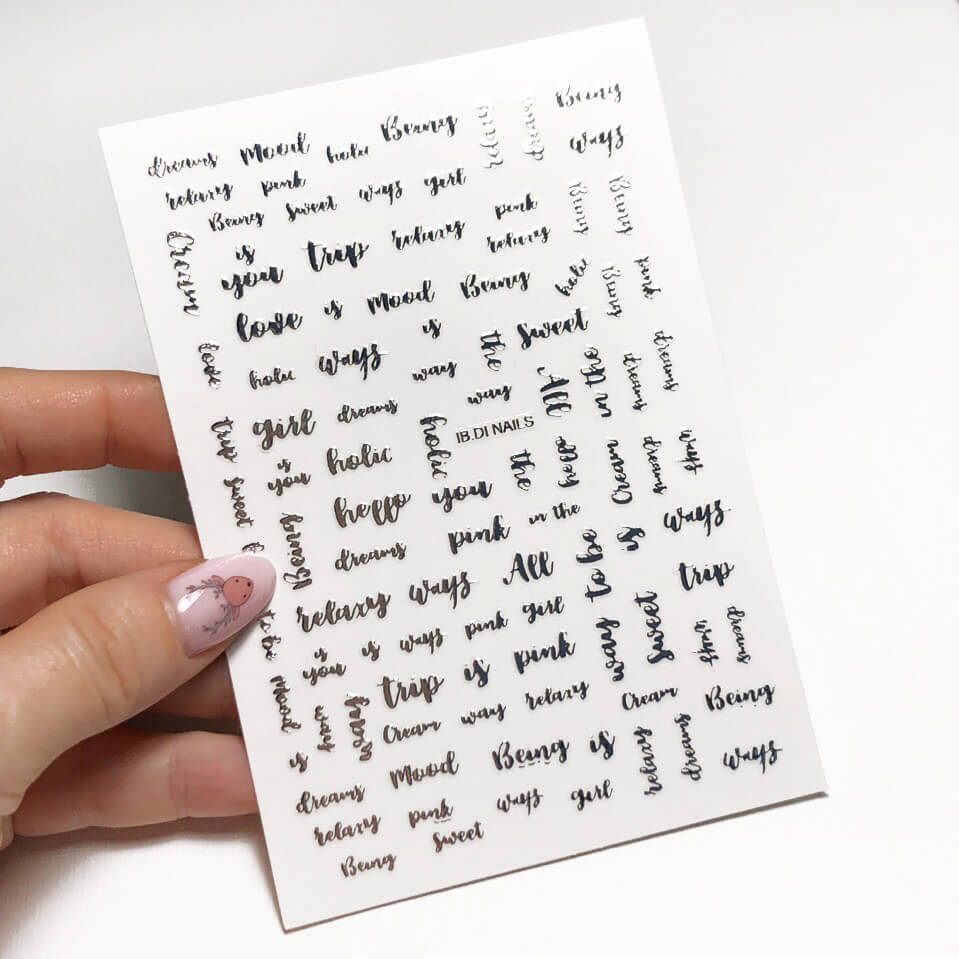 dreams Mood holic Being Being
ways
relaxy pink
Being sweet ways girl
Cream
is
you trip relaxy pink
relaxy
Being Being
love is Mood Being holic Being pink
is
love holic ways way the Sweet
way All in the dreams dreams
girl dreams
holic
IB.DI NAILS
trip
is
you holic
the
help Cream dreams
sweet
hello you
in the
ways
dreams pink
is
relaxy ways All
way to be
trip
to be
is
you is ways pink girl
sweet
dreams
Mood
trip is pink
ways
Cream way relaxy Cream Being
is
Mood Being is relaxy dreams ways
dreams
ways girl
relaxy pink
sweet
Being